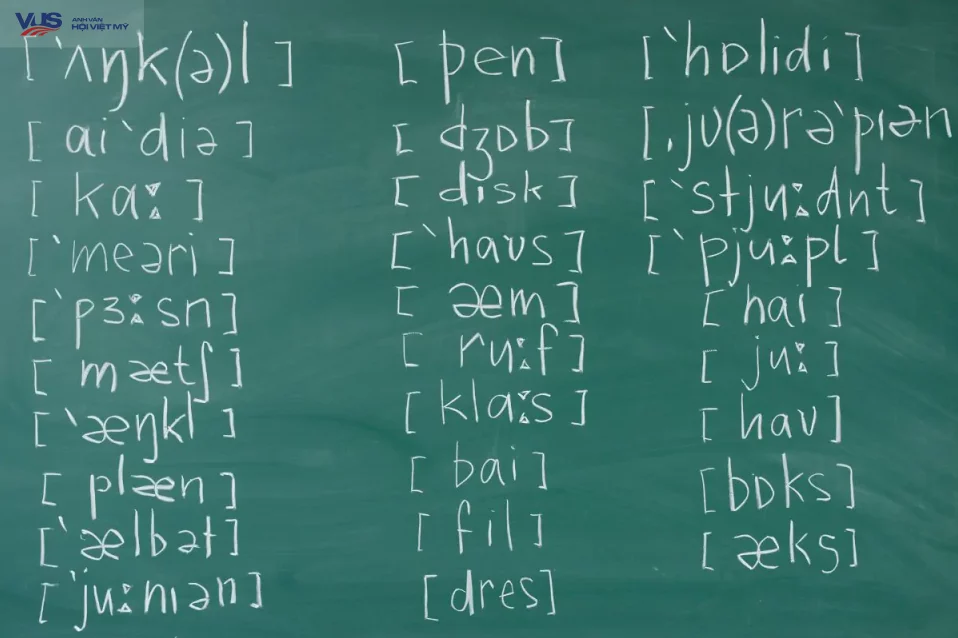 VUS ANH VĂN
HỘI VIỆT MỸ
[ˋʌŋk(ə)l]
[aiˋdiə]
[kaː]
[ˋmeəri]
[ˋpɜːsn]
[mætʃ]
[ˋæŋkl]
[plæn]
[ˋælbət]
[ˋjuːnıən]
[pen]
[dʒɒb]
[disk]
[ˋhaʊs]
[æm]
[ruːf]
[klaːs]
[bai]
[fil]
[dres]
[ˋhɒlidi]
[ˌjʊ(ə)rəˋpıən]
[ˋstjuːdnt]
[ˋpjuːpl]
[hai]
[juː]
[haʊ]
[bɒks]
[æks]